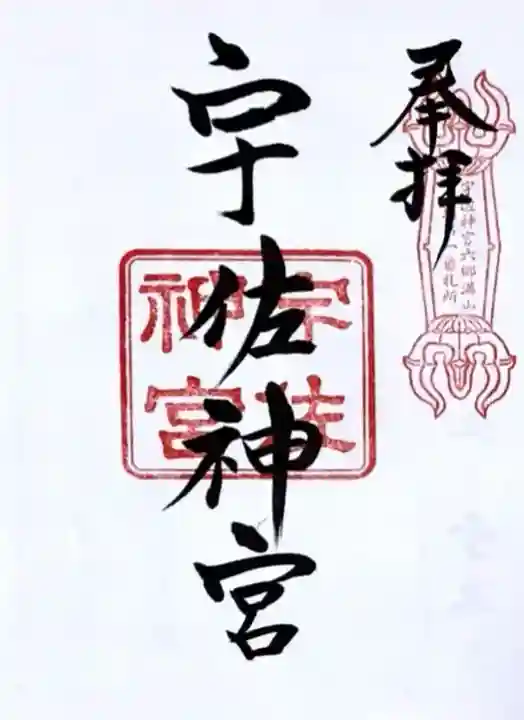 奉拝
宇佐神宮六郷満山
一番札所
宇佐神宮
宇佐
神宮